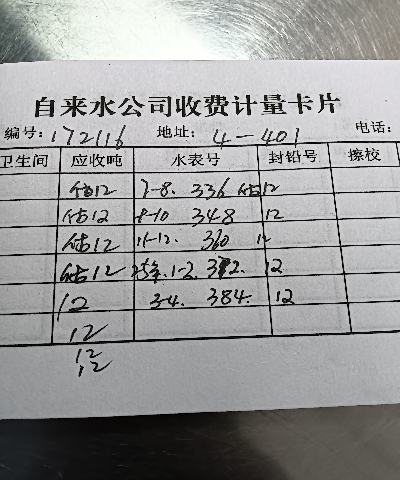 自来水公司收费计量卡片
编号: 172116 地址: 4-401 电话:
卫生间 应收吨 水表号 封铅号 擦校
估12 7-8. 336 估12
估12 9-10 348 12
估12 11-12. 360 12
估12 25年.1-2. 372. 12
12 3-4. 384. 12
12
12
12